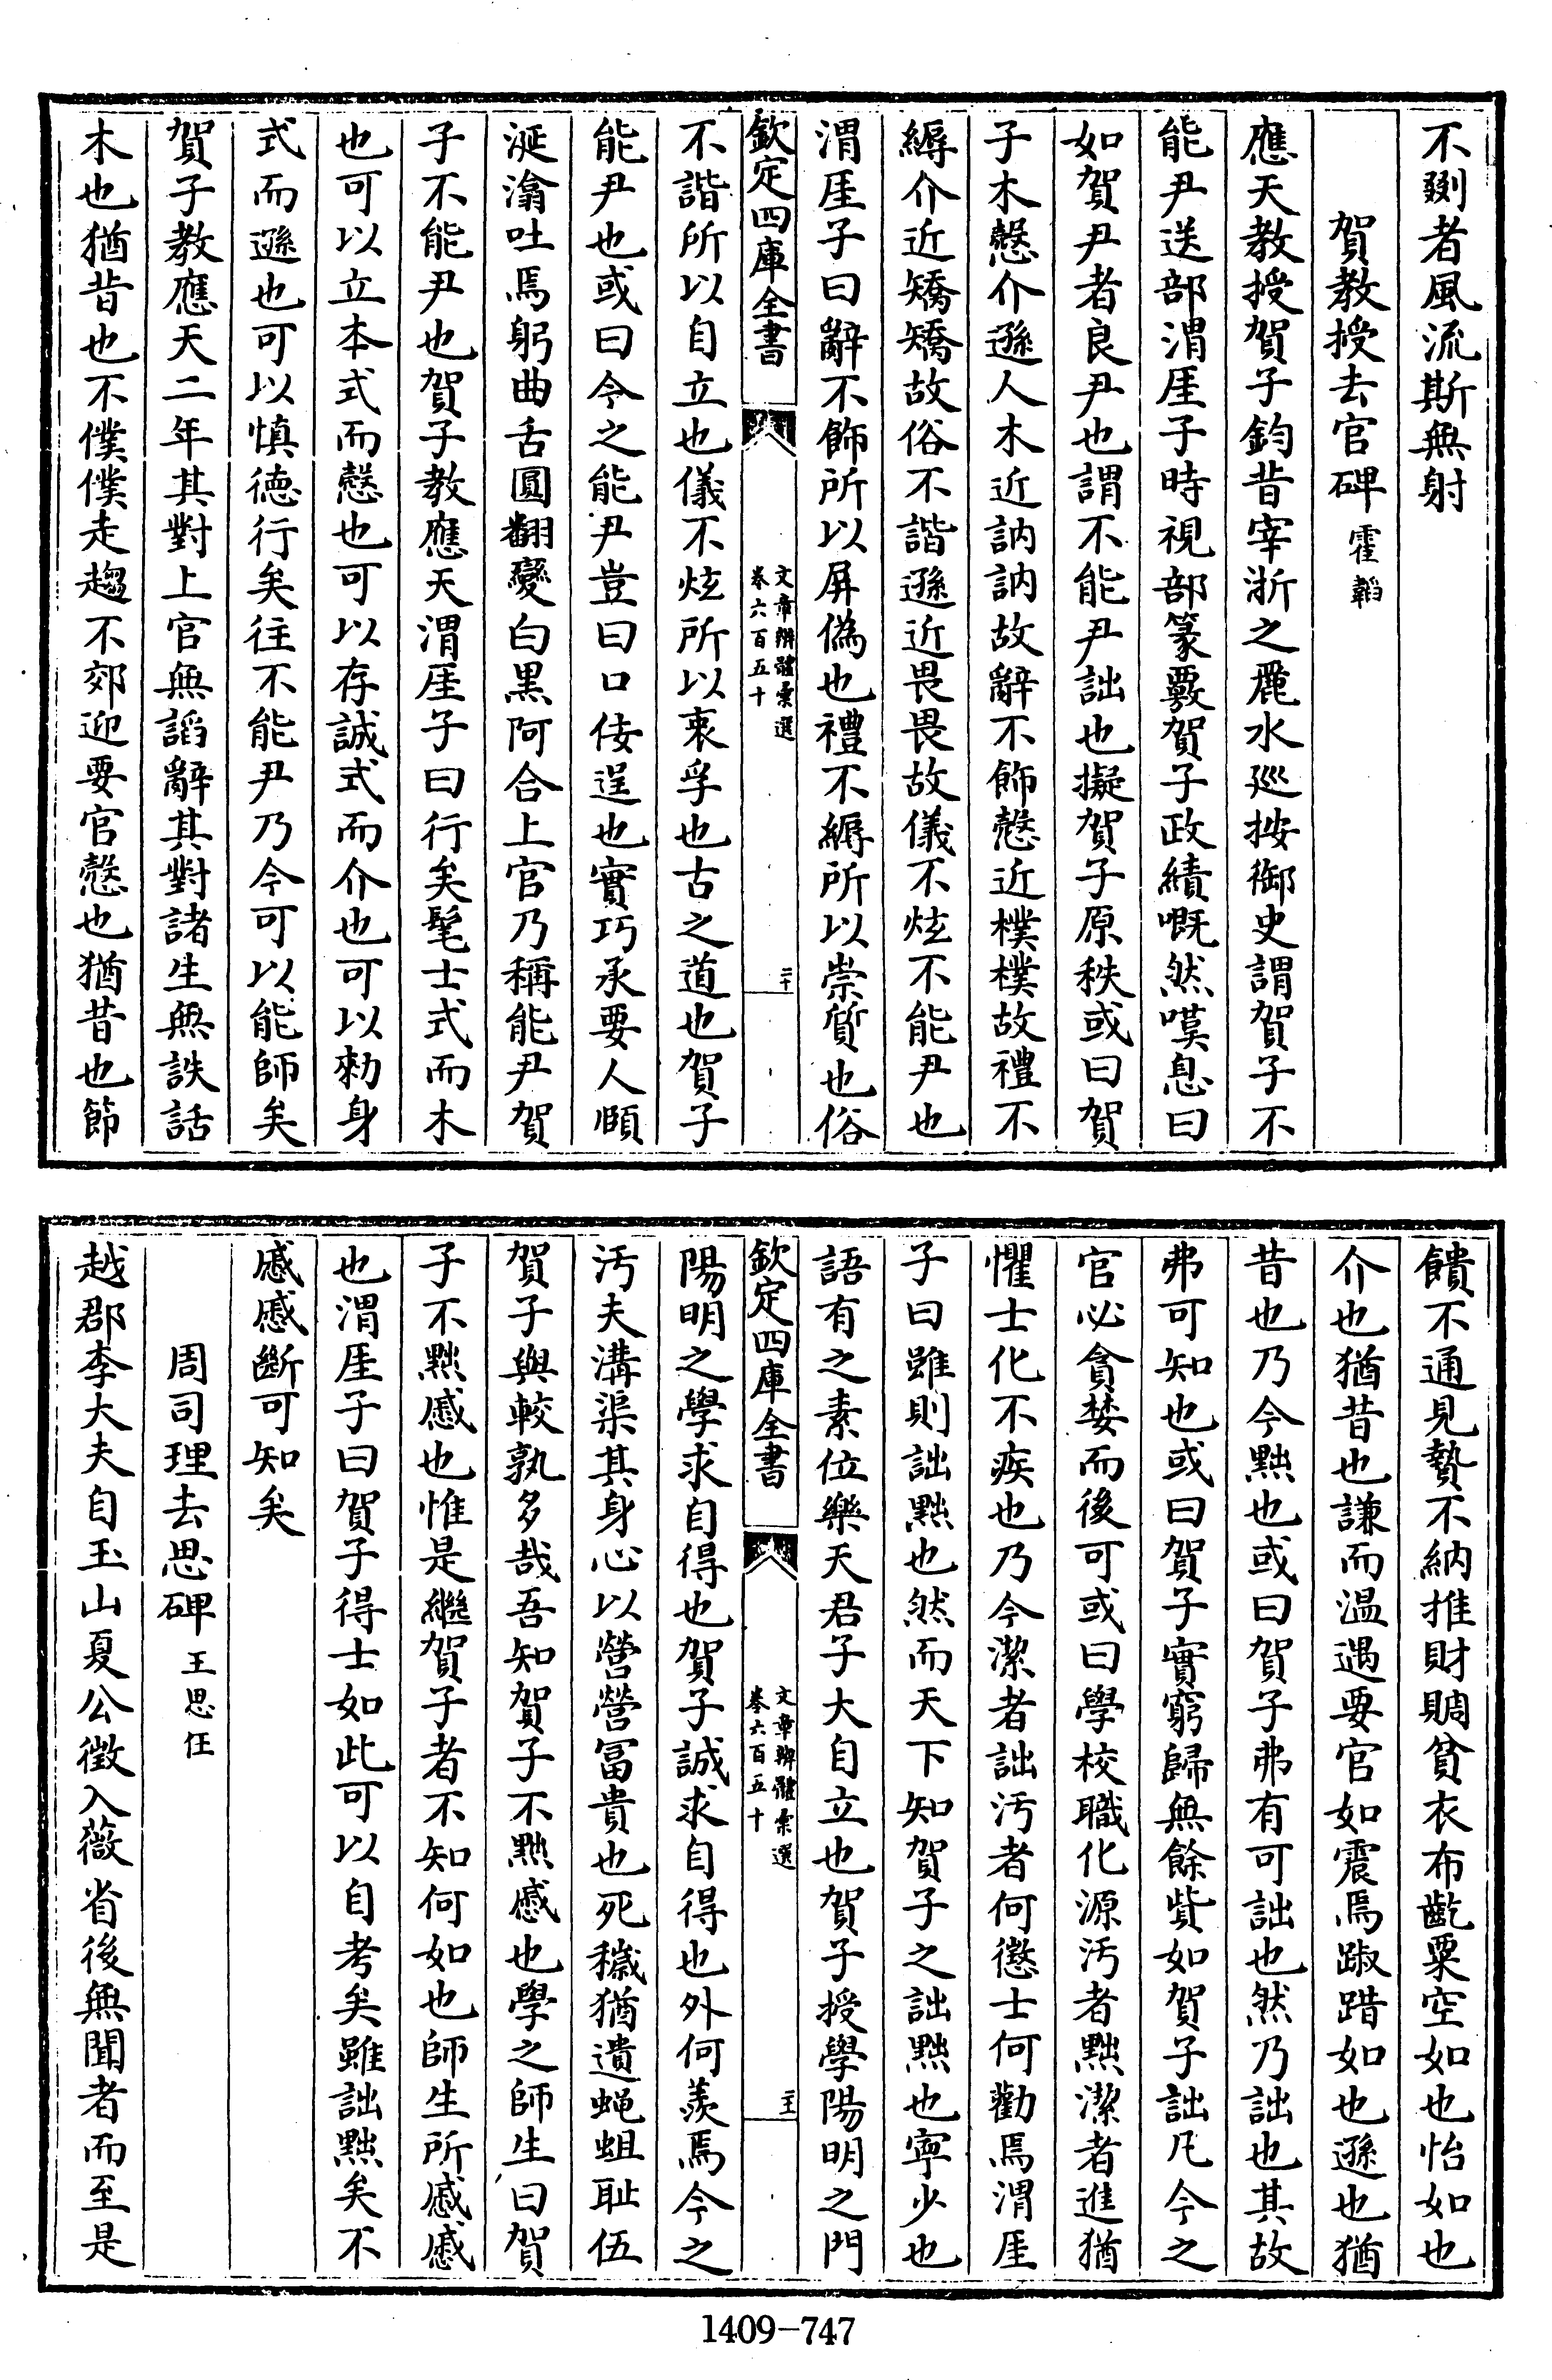 不剟者風流斯無射
賀教授去官碑 霍韜
應天教授賀子鈞昔宰浙之麗水廵按御史謂賀子不
能尹送部渭厓子時視部篆覈賀子政績嘅然嘆息曰
如賀尹者良尹也謂不能尹詘也擬賀子原秩或曰賀
子木慤介遜人木近訥訥故辭不飾慤近樸樸故禮不
縟介近矯矯故俗不諧遜近畏畏故儀不炫不能尹也
渭厓子曰辭不飾所以屏偽也禮不縟所以崇質也俗
欽定四庫全書
文章辨體彙選
卷六百五十
二十
不諧所以自立也儀不炫所以衷孚也古之道也賀子
能尹也或曰今之能尹豈曰口佞逞也實巧承要人頤
涎瀹吐焉躬曲舌圓翻變白黑阿合上官乃稱能尹賀
子不能尹也賀子教應天渭厓子曰行矣髦士式而木
也可以立本式而慤也可以存誠式而介也可以勑身
式而遜也可以慎德行矣往不能尹乃今可以能師矣
賀子教應天二年其對上官無謟辭其對諸生無詄話
木也猶昔也不僕僕走趨不郊迎要官慤也猶昔也節
饋不通見贄不納推財賙貧衣布齕粟空如也怡如也
介也猶昔也謙而溫遇要官如震焉踧踖如也遜也猶
昔也乃今黜也或曰賀子弗有可詘也然乃詘也其故
弗可知也或曰賀子實窮歸無餘貲如賀子詘凡今之
官必貪婪而後可或曰學校職化源汚者黜潔者進猶
懼士化不疾也乃今潔者詘汚者何懲士何勸焉渭厓
子曰雖則詘黜也然而天下知賀子之詘黜也寜少也
語有之素位樂天君子大自立也賀子授學陽明之門
欽定四庫全書
文章辨體彙選
卷六百五十
二十一
陽明之學求自得也賀子誠求自得也外何羨焉今之
汚夫溝渠其身心以營營富貴也死穢猶遺蠅蛆耻伍
賀子與較孰多哉吾知賀子不黜慼也學之師生曰賀
子不黜慼也惟是繼賀子者不知何如也師生所慼慼
也渭厓子曰賀子得士如此可以自考矣雖詘黜矣不
慼慼斷可知矣
周司理去思碑 王思任
越郡李大夫自玉山夏公徵入薇省後無聞者而至是
1409-747